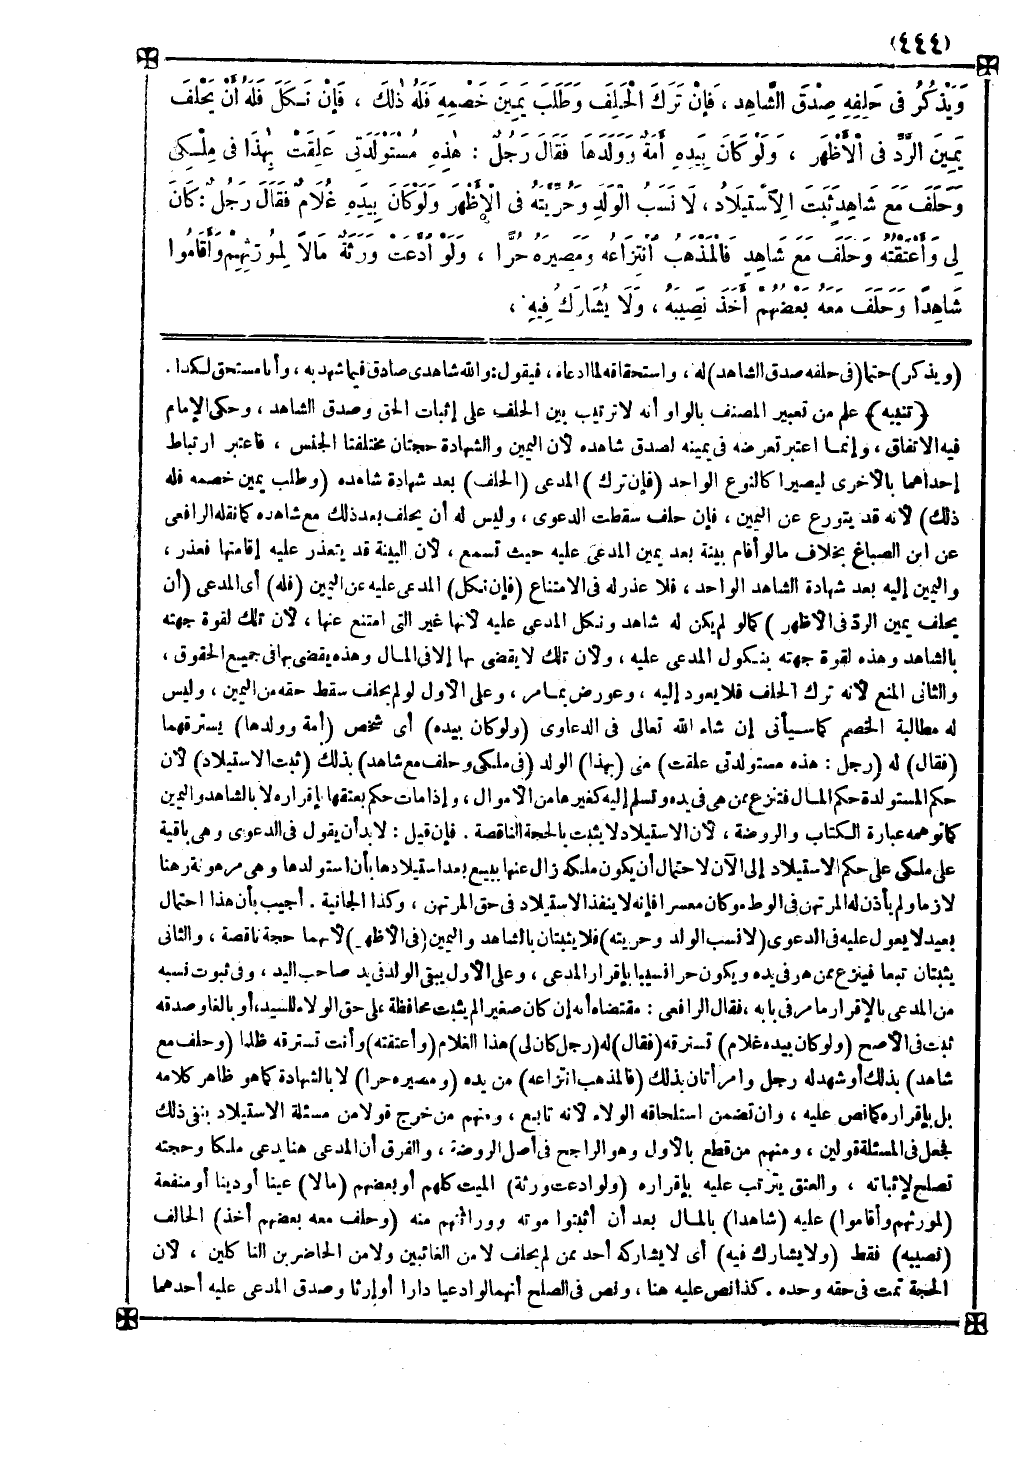 (٤٤٤)
وَيَذْكُرُ فِى حَلِفِهِ صِدْقَ الشَّاهِدِ ، فَإِنْ تَرَكَ الْحَلِفَ وَطَلَبَ يَمِينَ خَصْمِهِ فَلَهُ ذٰلِكَ ، فَإِنْ نَكَلَ فَلَهُ أَنْ يَحْلِفَ
يَمِينَ الرَّدِّ فِى الْأَظْهَرِ ، وَلَوْ كَانَ بِيَدِهِ أَمَةٌ وَوَلَدُهَا فَقَالَ رَجُلٌ : هٰذِهِ مُسْتَوْلَدَتِى عَلِقَتْ بِهٰذَا فِى مِلْكِى
وَحَلَفَ مَعَ شَاهِدٍ ثَبَتَ الِاسْتِيلَادُ ، لَا نَسَبُ الْوَلَدِ وَحُرِّيَّتُهُ فِى الْأَظْهَرِ وَلَوْ كَانَ بِيَدِهِ غُلَامٌ فَقَالَ رَجُلٌ : كَانَ
لِى وَأَعْتَقْتُهُ وَحَلَفَ مَعَ شَاهِدٍ فَالْمَذْهَبُ انْتِزَاعُهُ وَمَصِيرُهُ حُرًّا ، وَلَوِ ادَّعَتْ وَرَثَةٌ مَالًا لِمُوَرِّثِهِمْ وَأَقَامُوا
شَاهِدًا وَحَلَفَ مَعَهُ بَعْضُهُمْ أَخَذَ نَصِيبَهُ ، وَلَا يُشَارَكُ فِيهِ ،
(ويذكر) حتما (فى حلفه صدق الشاهد) له ، واستحقاقه لما ادعاه ، فيقول : والله شاهدى صادق فيما شهد به ، وأنا مستحق لكذا .
﴿تنبيه﴾ علم من تعبير المصنف بالواو أنه لا ترتيب بين الحلف على إثبات الحق وصدق الشاهد ، وحكى الإمام
فيه الاتفاق ، وإنما اعتبر تعرضه فى يمينه لصدق شاهده لأن اليمين والشهادة حجتان مختلفتا الجنس ، فاعتبر ارتباط
إحداهما بالأخرى ليصيرا كالنوع الواحد (فإن ترك) المدعى (الحلف) بعد شهادة شاهده (وطلب يمين خصمه فله
ذلك) لأنه قد يتورع عن اليمين ، فإن حلف سقطت الدعوى ، وليس له أن يحلف بعد ذلك مع شاهده كما نقله الرافعى
عن ابن الصباغ بخلاف ما لو أقام بينة بعد يمين المدعى عليه حيث تسمع ، لأن البينة قد يتعذر عليه إقامتها فعذر ،
واليمين إليه بعد شهادة الشاهد الواحد ، فلا عذر له فى الامتناع (فإن نكل) المدعى عليه عن اليمين (فله) أى المدعى (أن
يحلف يمين الردّ فى الأظهر) كما لو لم يكن له شاهد ونكل المدعى عليه لأنها غير التى امتنع عنها ، لأن تلك لقوة جهته
بالشاهد وهذه لقوة جهته بنكول المدعى عليه ، ولأن تلك لا يقضى بها إلا فى المال وهذه يقضى بها فى جميع الحقوق ،
والثانى المنع لأنه ترك الحلف فلا يعود إليه ، وعورض بما مر ، وعلى الأول لو لم يحلف سقط حقه من اليمين ، وليس
له مطالبة الخصم كما سيأتى إن شاء الله تعالى فى الدعاوى (ولو كان بيده) أى شخص (أمة وولدها) يسترقهما
(فقال) له (رجل : هذه مستولدتى علقت) منى (بهذا) الولد (فى ملكى وحلف مع شاهد) بذلك (ثبت الاستيلاد) لأن
حكم المستولدة حكم المال فتنزع ممن هى فى يده وتسلم إليه كغيرها من الأموال ، وإذا مات حكم بعتقها بإقراره لا بالشاهد واليمين
كما توهمه عبارة الكتاب والروضة ، لأن الاستيلاد لا يثبت بالحجة الناقصة . فإن قيل : لا بد أن يقول فى الدعوى وهى باقية
على ملكى على حكم الاستيلاد إلى الآن لاحتمال أن يكون ملكه زال عنها ببيع بعد استيلادها بأن استولدها وهى مرهونة رهنا
لازما ولم يأذن له المرتهن فى الوطء وكان معسرا فإنه لا ينفذ الاستيلاد فى حق المرتهن ، وكذا الجانية . أجيب بأن هذا احتمال
بعيد لا يعول عليه فى الدعوى (لا نسب الولد وحريته) فلا يثبتان بالشاهد واليمين (فى الأظهر) لأنهما حجة ناقصة ، والثانى
يثبتان تبعا فينزع ممن هو فى يده ويكون حرا نسيبا بإقرار المدعى ، وعلى الأول يبقى الولد فى يد صاحب اليد ، وفى ثبوت نسبه
من المدعى بالإقرار ما مر فى بابه ، فقال الرافعى : مقتضاه أنه إن كان صغيرا لم يثبت محافظة على حق الولاء للسيد ، أو بالغا وصدقه
ثبت فى الأصح (ولو كان بيده غلام) تسترقه (فقال) له (رجل كان لى) هذا الغلام (وأعتقته) وأنت تسترقه ظلما (وحلف مع
شاهد) بذلك أو شهد له رجل وامرأتان بذلك (فالمذهب انتزاعه) من يده (ومصيره حرا) لا بالشهادة كما هو ظاهر كلامه
بل بإقراره كما نص عليه ، وان تضمن استلحاقه الولاء لأنه تابع ، ومنهم من خرج قولا من مسئلة الاستيلاد بنفى ذلك
فجعل فى المسئلة قولين ، ومنهم من قطع بالأول وهو الراجح فى أصل الروضة ، والفرق أن المدعى هنا يدعى ملكا وحجته
تصلح لإثباته ، والعتق يترتب عليه بإقراره (ولو ادعت ورثة) الميت كلهم أو بعضهم (مالا) عينا أو دينا أو منفعة
(لمورثهم وأقاموا) عليه (شاهدا) بالمال بعد أن أثبتوا موته ووراثتهم منه (وحلف معه بعضهم أخذ) الحالف
(نصيبه) فقط (ولا يشارك فيه) أى لا يشاركه أحد ممن لم يحلف لا من الغائبين ولا من الحاضرين الناكلين ، لأن
الحجة تمت فى حقه وحده . كذا نص عليه هنا ، ونص فى الصلح أنهما لو ادعيا دارا أو إرثا وصدق المدعى عليه أحدهما